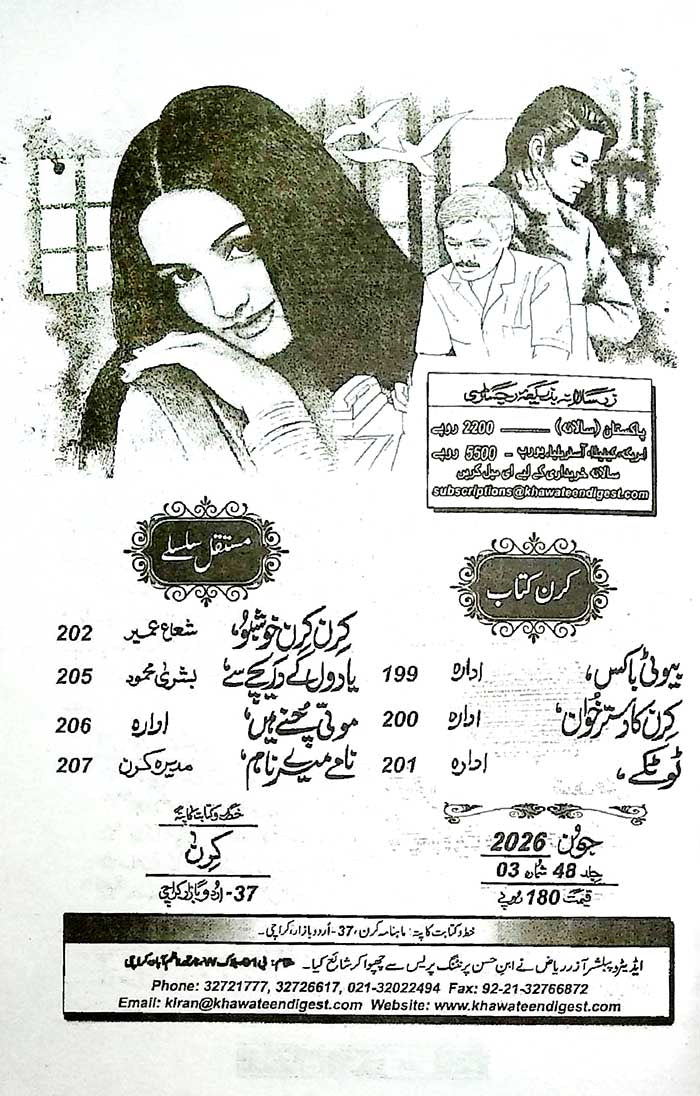 زرسالانہ بذریعہ رجسٹری
پاکستان (سالانہ) ——— 2200 روپے
امریکہ، کینیڈا، آسٹریلیا، یورپ - 5500 روپے
سالانہ خریداری کے لیے ای میل کریں
subscriptions@khawateendigest.com
کرن کتاب
بیوٹی باکس، ادارہ 199
کرن کا دسترخوان، ادارہ 200
ٹوٹکے، ادارہ 201
مستقل سلسلے
کرن کرن خوشبو، شعاع عمیر 202
یادوں کے دریچے سے، بشریٰ محمود 205
موتی چنے ہیں، ادارہ 206
نامے میرے نام، مدیرہ کرن 207
جون 2026
جلد 48 شمارہ 03
قیمت 180 روپے
خط و کتابت کا پتہ
کرن
37- اردو بازار کراچی
خط و کتابت کا پتہ: ماہنامہ کرن، 37- اُردو بازار، کراچی۔
ایڈیٹر و پبلشر آذر ریاض نے ابنِ حسن پرنٹنگ پریس سے چھپوا کر شائع کیا۔
Phone: 32721777, 32726617, 021-32022494 Fax: 92-21-32766872
Email: kiran@khawateendigest.com Website: www.khawateendigest.com